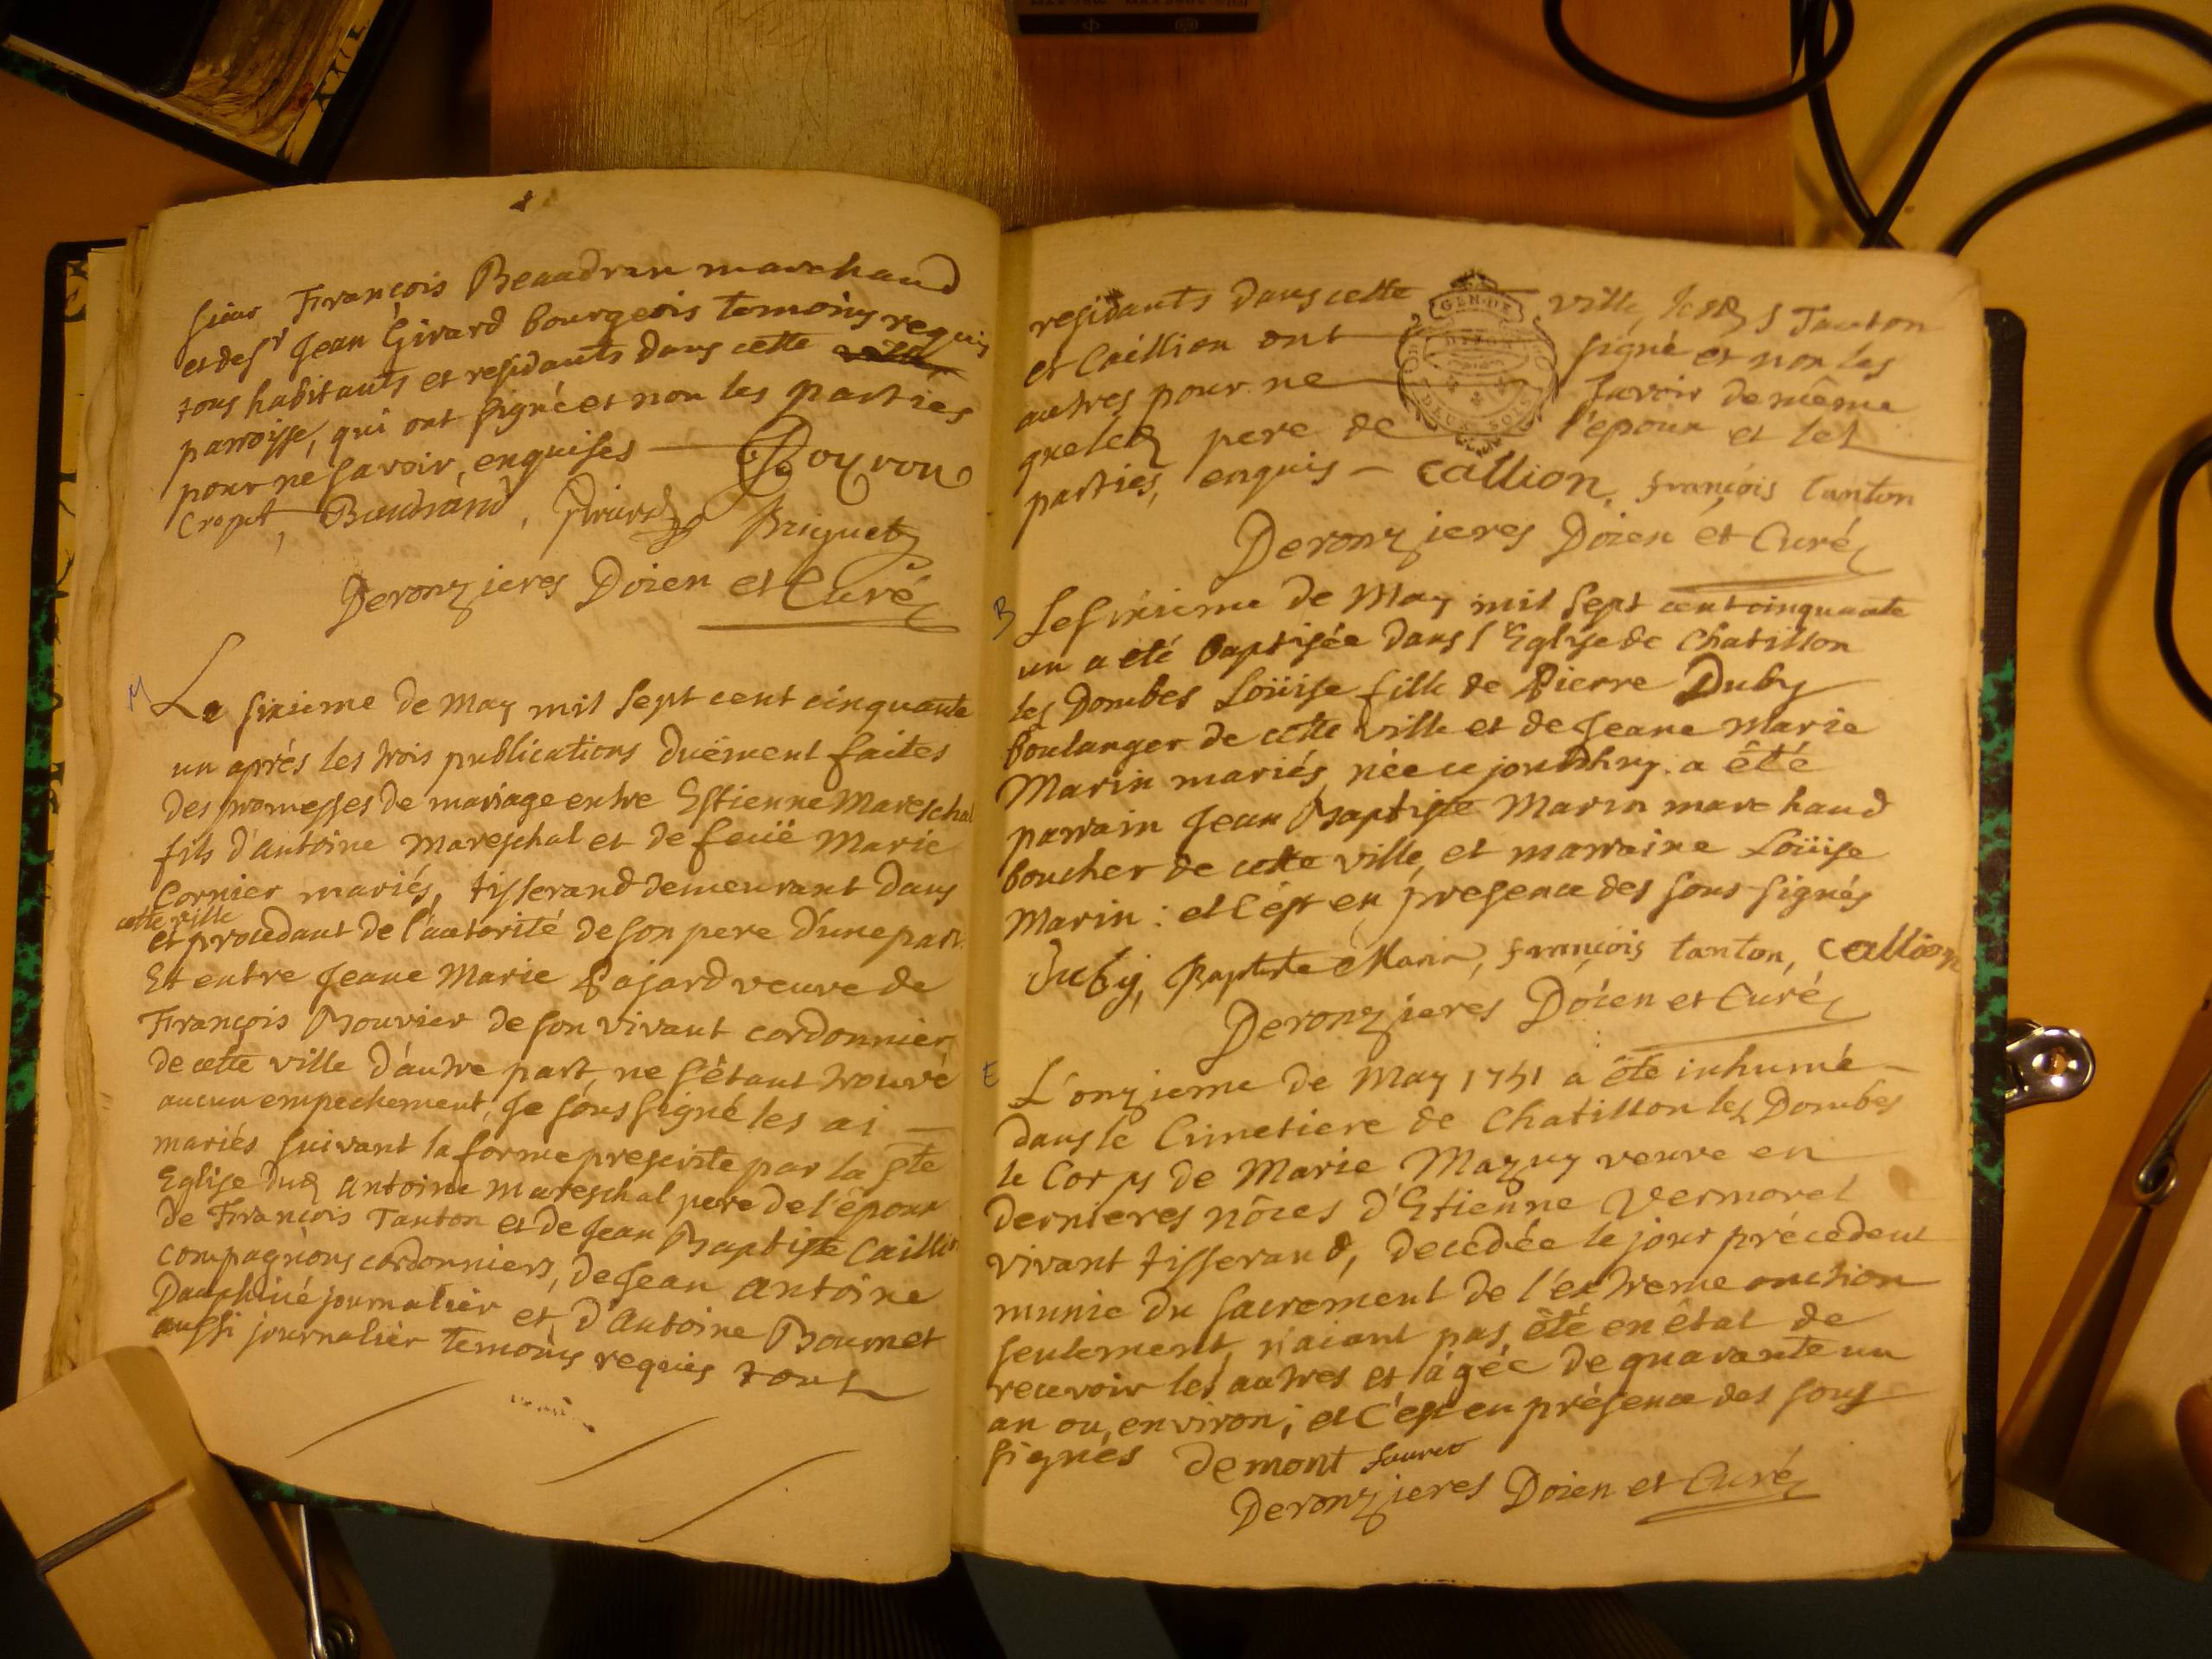 sieur François Beaudran marchand
et de sr Jean Girard bourgeois temoins requis
tous habitants et residants dans cette
parroisse, qui ont signé et non les parties
pour ne savoir, enquises — Poyron
Cropet, Baudrand, Girard Briguet
Deronzieres Doien et Curé
M Le sixieme de may mil sept cent cinquante
un aprés les trois publications duëment faites
des promesses de mariage entre Estienne Mareschal
fils d'antoine Mareschal et de feuë Marie
Cornier mariés, tisserand demeurant dans
cette ville
et procedant de l'autorité de son pere d'une part.
Et entre Jeane Marie Pajard veuve de
François Bouvier de son vivant cordonnier
de cette ville d'autre part, ne s'êtant trouvé
aucun empechement, Je sous signé les ai —
mariés suivant la forme prescrite par la ste
Eglise dud antoine mareschal pere de l'époux
de François Tanton et de Jean Baptiste Caillion
compagnons cordonniers, de Jean antoine
Dauphiné journalier et d'Antoine Bournet
aussi journalier temoins requis tous
residants dans cette ville, lesd s Tanton
et Caillion ont signé et non les
autres pour ne savoir de même
que led pere de l'époux et les
parties, enquis — Callion, françois tanton
GEN. DE
DIJON
DEUX SOLS
Deronzieres Doien et Curé
B Le sixieme de May mil sept cent cinquante
un a eté baptisée dans l'Eglise de Chatillon
les Dombes Loüise fille de Pierre Duby
boulanger de cette ville et de Jeane Marie
Marin mariés, née ce jourdhuy. a êté
parrain Jean Baptiste Marin marchand
boucher de cette ville, et marraine Loüise
Marin : et c'est en presence des sous-signés
Duby, Baptiste Marin, françois tanton, callion
Deronzieres Doien et Curé
E L'onzieme de May 1751 a êté inhumé —
dans le Cimetiere de Chatillon les Dombes
le Corps de Marie Mazuy veuve en
dernieres nôces d'Etienne Vermorel
vivant tisserand, decedée le jour précedent
munie du sacrement de l'extreme onction
seulement, n'aiant pas êté en êtat de
recevoir les autres et âgée de quarante un
an ou environ ; et c'est en présence des sous
signés demont
Deronzieres Doien et Curé